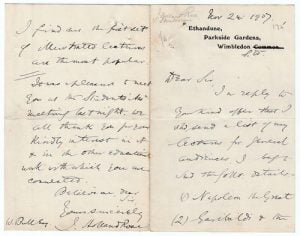 Nov 24 1907
"Ethandune,
Parkside Gardens,
Wimbledon Common.
S.W.
Dear Sir
In reply to
your kind offer that I
send a list of my
lectures for general
audiences I beg to
send the foll. details:—
(1) Napoleon the Great
(2) Garibaldi & the
I find the first set
of illustrated lectures
are the most popular.
It was a pleasure to meet
you at the Students'
meeting last night. We
all thank you for your
kindly interest in it
& in the other education
work with which you are
connected.
Believe me, dear
Yours sincerely
J. Holland Rose